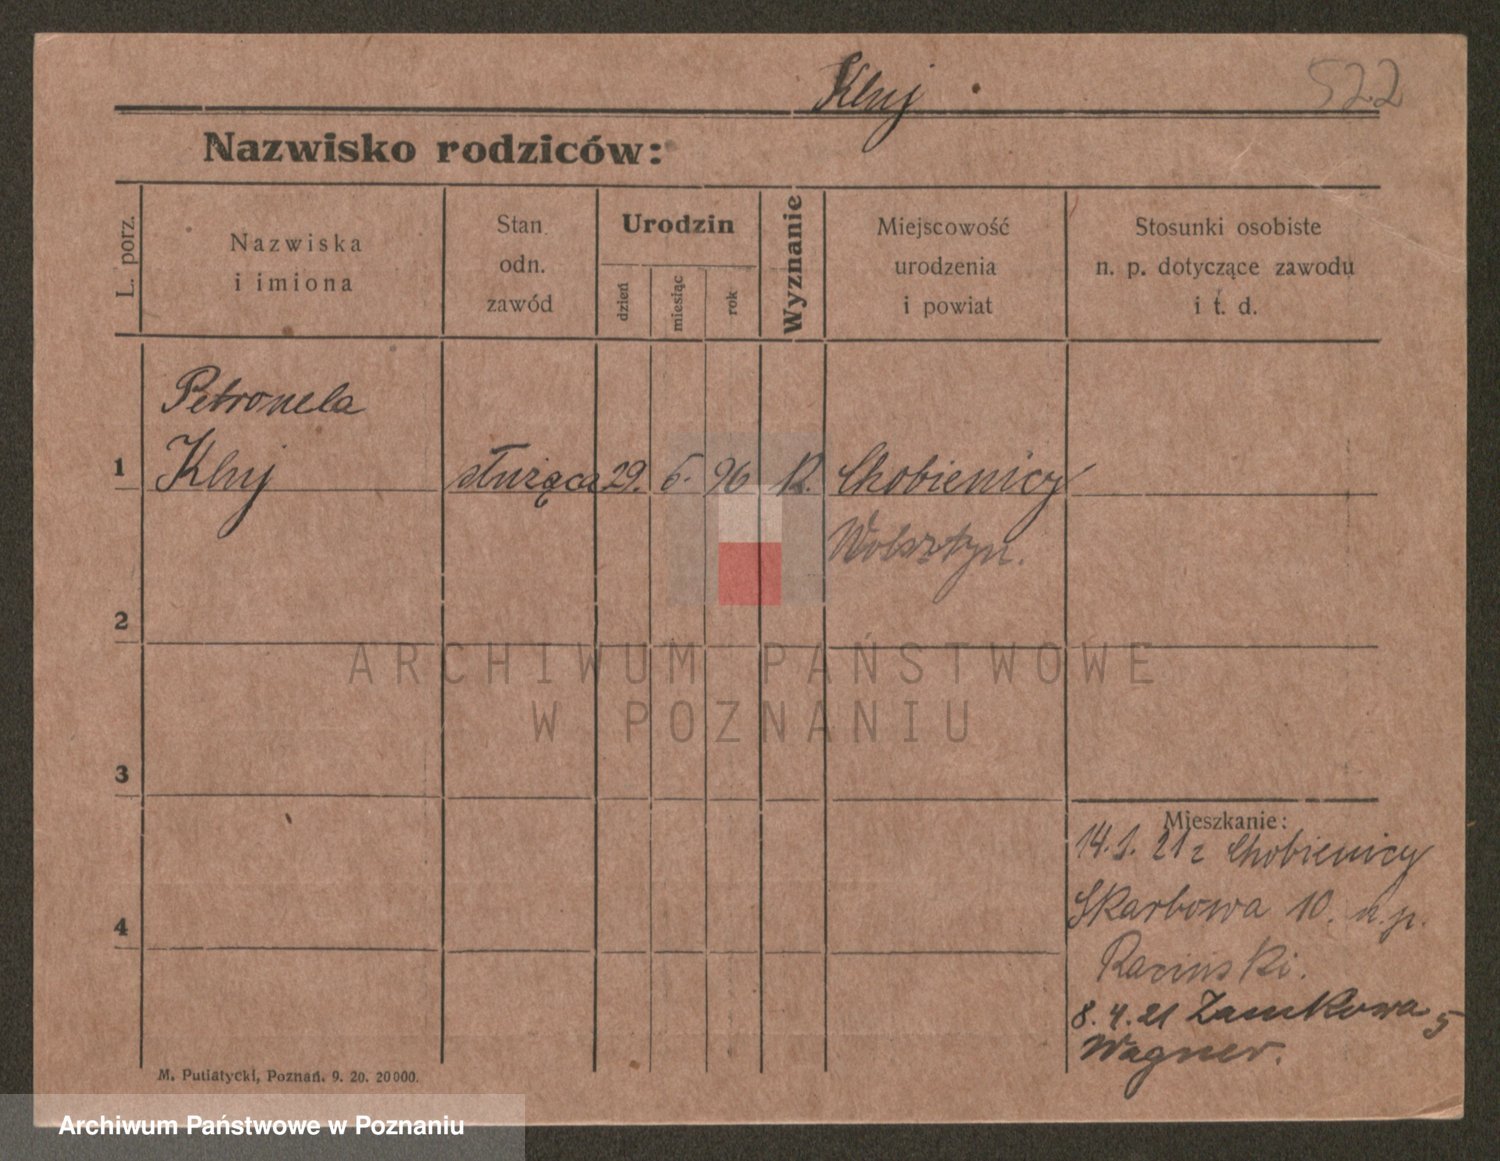 Kluj
522
Nazwisko rodziców:
L. porz.
Nazwiska
i imiona
Stan.
odn.
zawód
Urodzin
dzień
miesiąc
rok
Wyznanie
Miejscowość
urodzenia
i powiat
Stosunki osobiste
n. p. dotyczące zawodu
i t. d.
Petronela
1 Kluj służąca 29. 6. 96 R. Chobienicy
Wolsztyn.
2
ARCHIWUM PAŃSTWOWE
W POZNANIU
3
Mieszkanie:
14. 1. 21 z Chobienicy
4 Skarbowa 10. n. p.
Raciński.
8. 4. 21 Zamkowa 5
Wagner.
M. Putiatycki, Poznań. 9. 20. 20000.
Archiwum Państwowe w Poznaniu